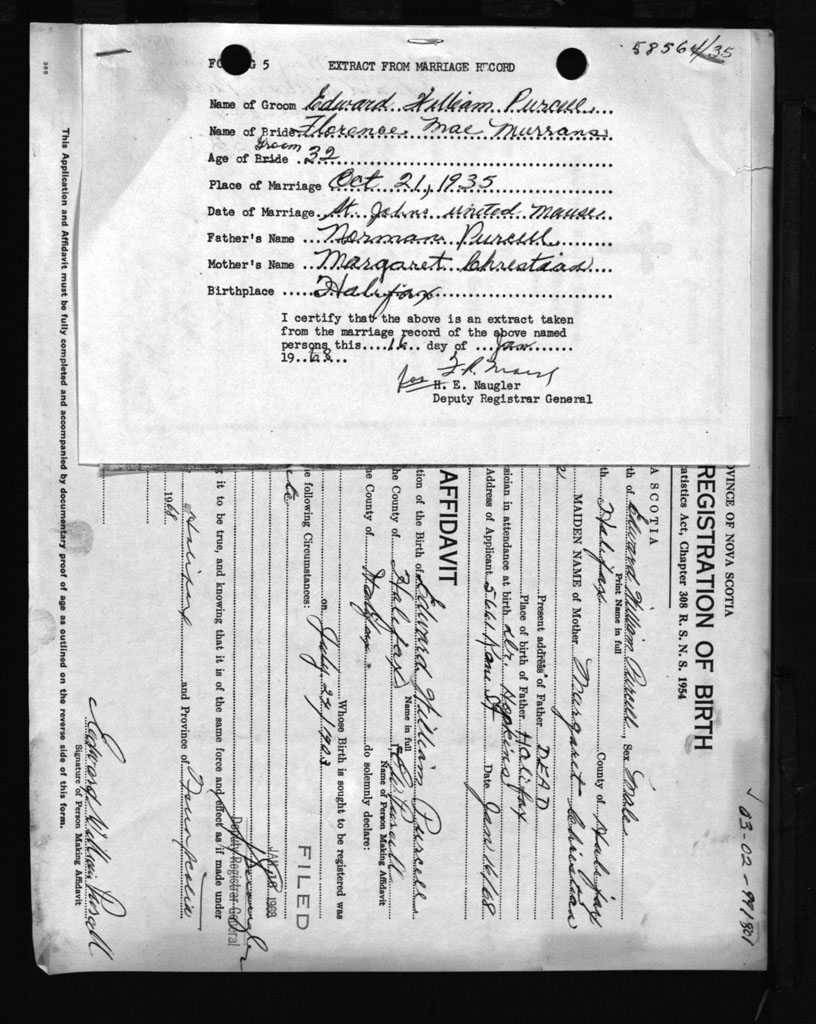 58564/35
FO G 5 EXTRACT FROM MARRIAGE RECORD
Name of Groom Edward William Purcell
Name of Bride Florence Mae Murrans
Groom
Age of Bride 32
Place of Marriage Oct 21, 1935
Date of Marriage St. Johns United Manse
Father's Name Norman Purcell
Mother's Name Margaret Christian
Birthplace Halifax
I certify that the above is an extract taken
from the marriage record of the above named
persons this 16 day of Jan
1968
for
H. E. Naugler
Deputy Registrar General
OVINCE OF NOVA SCOTIA
REGISTRATION OF BIRTH
atistics Act, Chapter 308 R. S. N. S. 1954
A SCOTIA
th of Edward William Purcell, Sex Male
Print Name in full
th Halifax County of Halifax
MAIDEN NAME of Mother Margaret Christian
Present address of Father DEAD
Place of birth of Father Halifax
sician in attendance at birth Dr. Hopkins
Address of Applicant 5661 Kane St Date Jan 16/68
AFFIDAVIT
tion of the Birth of Edward William Purcell
Name in full
the County of Halifax I, E W Purcell
Name of Person Making Affidavit
he County of Halifax do solemnly declare:
Whose Birth is sought to be registered was
on July 27/1903
e following Circumstances:
FILED
JAN 1968
Deputy Registrar General
g it to be true, and knowing that it is of the same force and effect as if made under
Halifax and Province of Nova Scotia
1968
Edward William Purcell
Signature of Person Making Affidavit
This Application and Affidavit must be fully completed and accompanied by documentary proof of age as outlined on the reverse side of this form.
03-02-991801